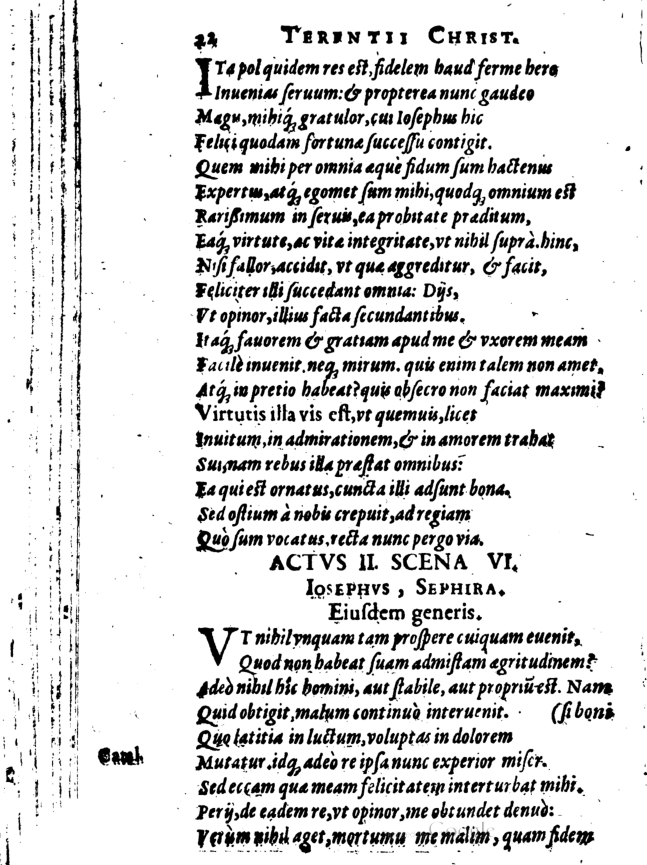 22 TERENTII CHRIST.
ITa pol quidem res est, fidelem haud ferme hero
Inuenias seruum: & propterea nunc gaudeo
Magis, mihiq́; gratulor, cui Iosephus hic
Felici quodam fortunæ successu contigit.
Quem mihi per omnia æquè fidum sum hactenus
Expertus, atq́; egomet sum mihi, quodq́; omnium est
Rarißimum in seruis, ea probitate præditum,
Eaq́; virtute, ac vitæ integritate, vt nihil suprà. hinc,
Nisi fallor, accidit, vt quæ aggreditur, & facit,
Feliciter illi succedant omnia: Dijs,
Vt opinor, illius facta secundantibus.
Itaq́; fauorem & gratiam apud me & vxorem meam
Facilè inuenit. neq́; mirum. quis enim talem non amet,
Atq́; in pretio habeat? quis obsecro non faciat maximi?
Virtutis illa vis est, vt quemuis, licet
Inuitum, in admirationem, & in amorem trahat
Sui, nam rebus illa præstat omnibus:
Ea qui est ornatus, cuncta illi adsunt bona.
Sed ostium à nobis crepuit, ad regiam
Quò sum vocatus, recta nunc pergo via.
ACTVS II. SCENA VI.
IOSEPHVS, SEPHIRA.
Eiusdem generis.
VT nihil vnquam tam prospere cuiquam euenit,
Quod non habeat suam admistam ægritudinem?
Adeò nihil hîc homini, aut stabile, aut propriũ est. Nam
Quid obtigit, malum continuò interuenit. (si boni
Quo lætitia in luctum, voluptas in dolorem
Mutatur, idq́; adeò re ipsa nunc experior miser.
Sed eccam quæ meam felicitatem interturbat mihi.
Perij, de eadem re, vt opinor, me obtundet denuò:
Verùm nihil aget, mortuum me malim, quam fidem